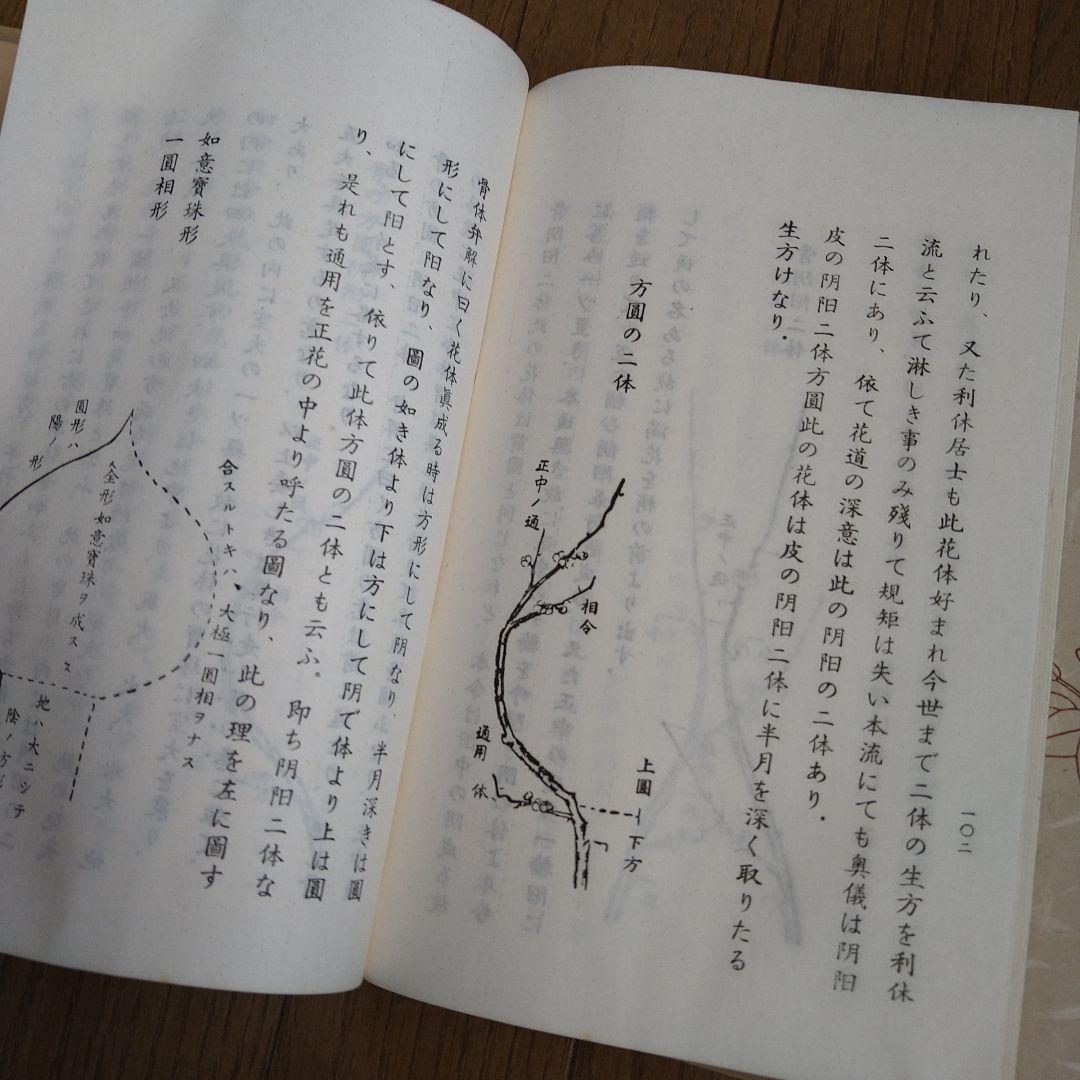 一〇二
れたり、又た利休居士も此花体好まれ今世まで二体の生方を利休
流と云ふて淋しき事のみ残りて規矩は失い本流にても奥儀は阴阳
二体にあり、依て花道の深意は此の阴阳の二体あり．
皮の阴阳二体方圓此の花体は皮の阴阳二体に半月を深く取りたる
生方けなり．
方圓の二体
正中ノ通
相令
通用
体
上圓
下方
骨体弁解に曰く花体眞成る時は方形にして阴なり、半月深きは圓
形にして阳なり、圖の如き体より下は方にして阴で体より上は圓
にして阳とす、依りて此体方圓の二体とも云ふ。即ち阴阳二体な
り、是れも通用を正花の中より呼たる圖なり、此の理を左に圖す
如意寶珠形
一圓相形
合スルトキハ、大極一圓相ヲナス
全形如意寶珠ヲ成ス
圓形ハ
陽ノ形
地ハ大ニシテ
陰ノ方形